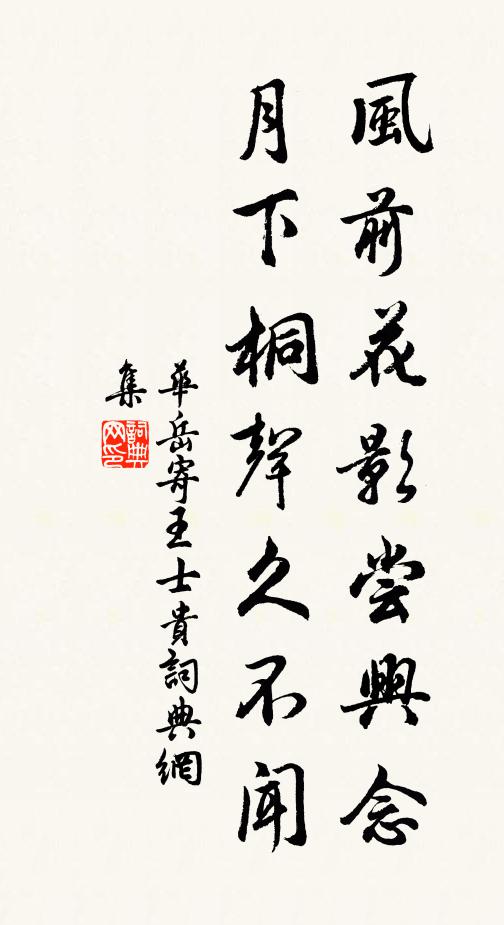 風前花影嘗興念
月下桐聲久不聞
華岳寄王士貴詞典網
集
詞典网印